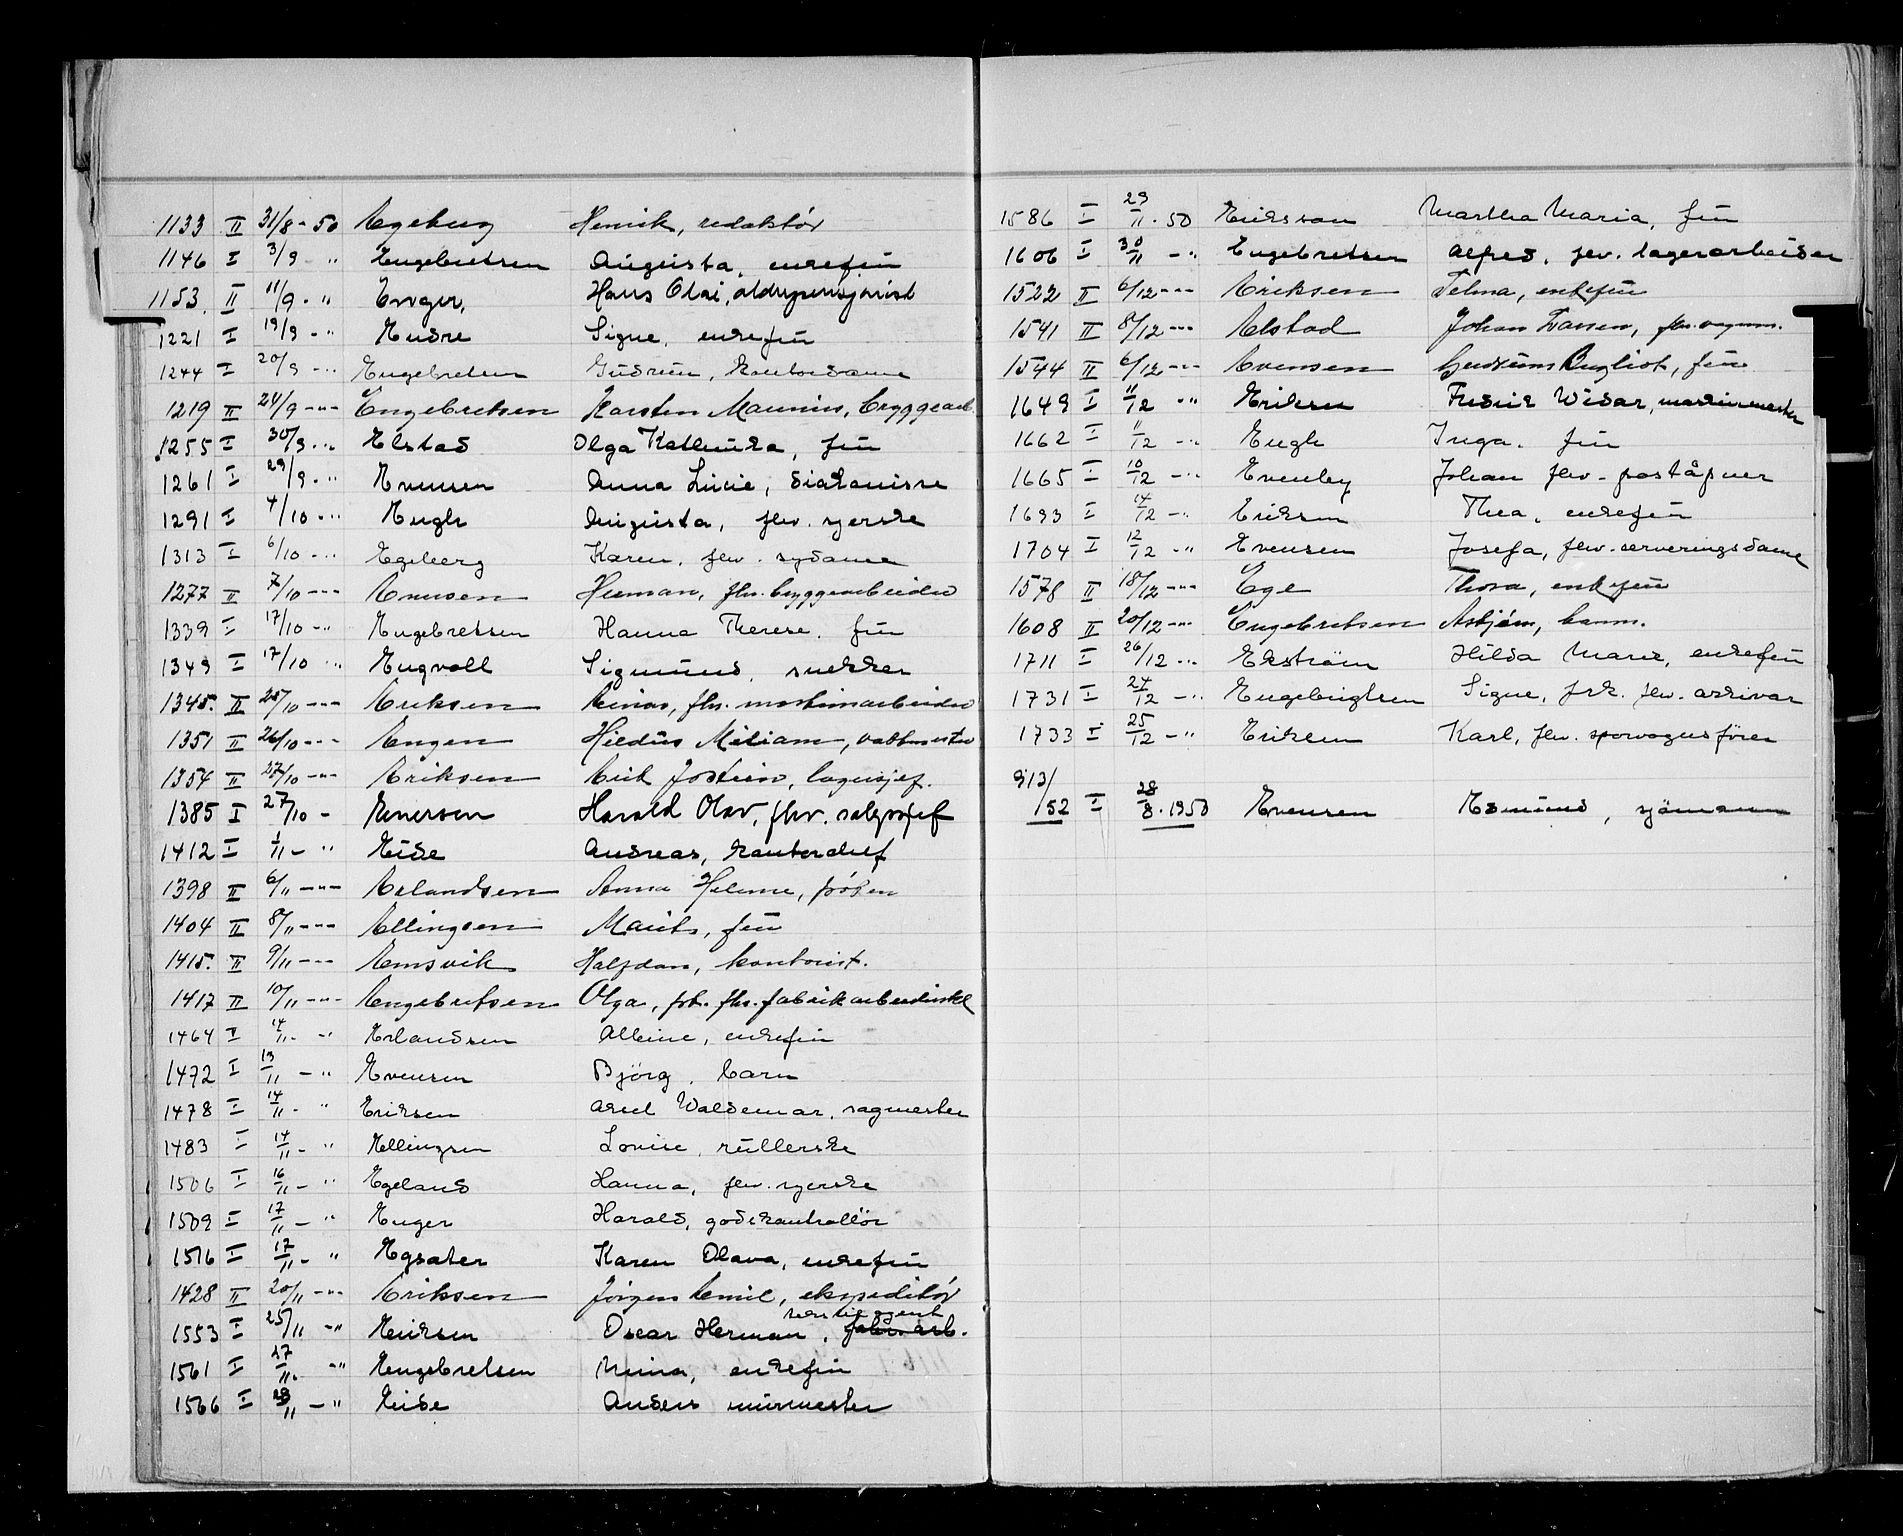 1133 II 31/8 - 50 Egeberg Henrik, redaktör
1146 I 3/9 - " Engebretsen Augusta, enkefru
1153. II 11/9 - " Enger, Hans Olai, alderspensjonist
1221 I 19/9 - " Endre Signe, enkefru
1244 I 20/9 - " Engebretsen Gudrun, kontordame
1219 II 24/9 - " Engebretsen Karsten Maurius, bryggearb.
1255 I 30/9 - " Elstad Olga Kathinka, fru
1261 I 29/9 - " Evensen Anna Lucie, diakonisse
1291 I 4/10 - " Engh Augusta, fhv. syerske
1313 I 6/10 - " Egeberg Karen, fhv. sydame
1277 II 7/10 - " Evensen Herman, fhv. bryggearbeider
1339 I 17/10 - " Engebretsen Hanna Therese, fru
1349 I 17/10 - " Engvoll Sigmund, snekker
1345. II 25/10 - " Eriksen Einar, fhv. maskinarbeider
1351 II 26/10 - " Engen Miriam, vaktmester
1354 II 27/10 - " Eriksen Erik Jostein, lagersjef.
1385 I 27/10 - Enersen Harald Olav, fhv. salgssjef
1412 I 1/11 - " Eide Andreas, kontorchef
1398 II 6/11 - " Erlandsen Anna Helene, fröken
1404 II 8/11 - " Ellingsen Marit, fru
1415. II 9/11 - " Emsvik Halfdan, kontorist.
1417 II 10/11 - " Engebretsen Olga, frk. fhv. fabrikarbeiderske
1464 I 14/11 - " Erlandsen Albine, enkefru
1472 I 13/11 - " Evensen Björg, barn
1478 I 14/11 - " Eriksen Axel Waldemar, sagmester
1483 I 14/11 - " Ellingsen Lovise, rullerske
1506 I 16/11 - " Egeland Hanna, fhv. syerske
1509 I 17/11 - " Enger Harald, godskontrollör
1516 I 17/11 - " Egsæter Karen Olava, enkefru
1428 II 20/11 - " Eriksen Jörgen Emil, ekspeditör
agent
1553 I 25/11 - " Eriksen Oscar Herman, fabr. arb.
1561 I 27/11 - " Engebretsen Mina, enkefru
1566 I 28/11 - " Eide Anders murmester
1586 I 29/11 - 50 Eriksson Martha Maria, fru
1606 I 30/11 - " Engebretsen Alfred, fhv. lagerarbeider
1522 II 6/12 - " Eriksen Telma, enkefru
1541 II 8/12 - " Elstad Johan Larsen, fhv. vognm.
1544 II 6/12 - " Evensen Bugliot, fru
1649 I 11/12 - " Eriksen Fredrik Widar, maskinmester
1662 I 11/12 - " Engh Inga, fru
1665 I 10/12 - " Evenby Johan fhv. poståpner
1693 I 14/12 - " Eriksen Thea, enkefru
1704 I 12/12 - " Evensen Josefa, fhv. serveringsdame
1578 II 18/12 - " Ege Thora, enkefru
1608 II 20/12 - " Engebretsen Asbjörn, barn.
1711 I 26/12 - " Ekström Hilda Marie, enkefru
1731 I 24/12 - " Engebrigtsen Signe, frk. fhv. arkivar
1733 I 25/12 - " Eriksen Karl, fhv. sporvognsförer
913/52 I 28/8 - 1950 Evensen Edmund, sjömann